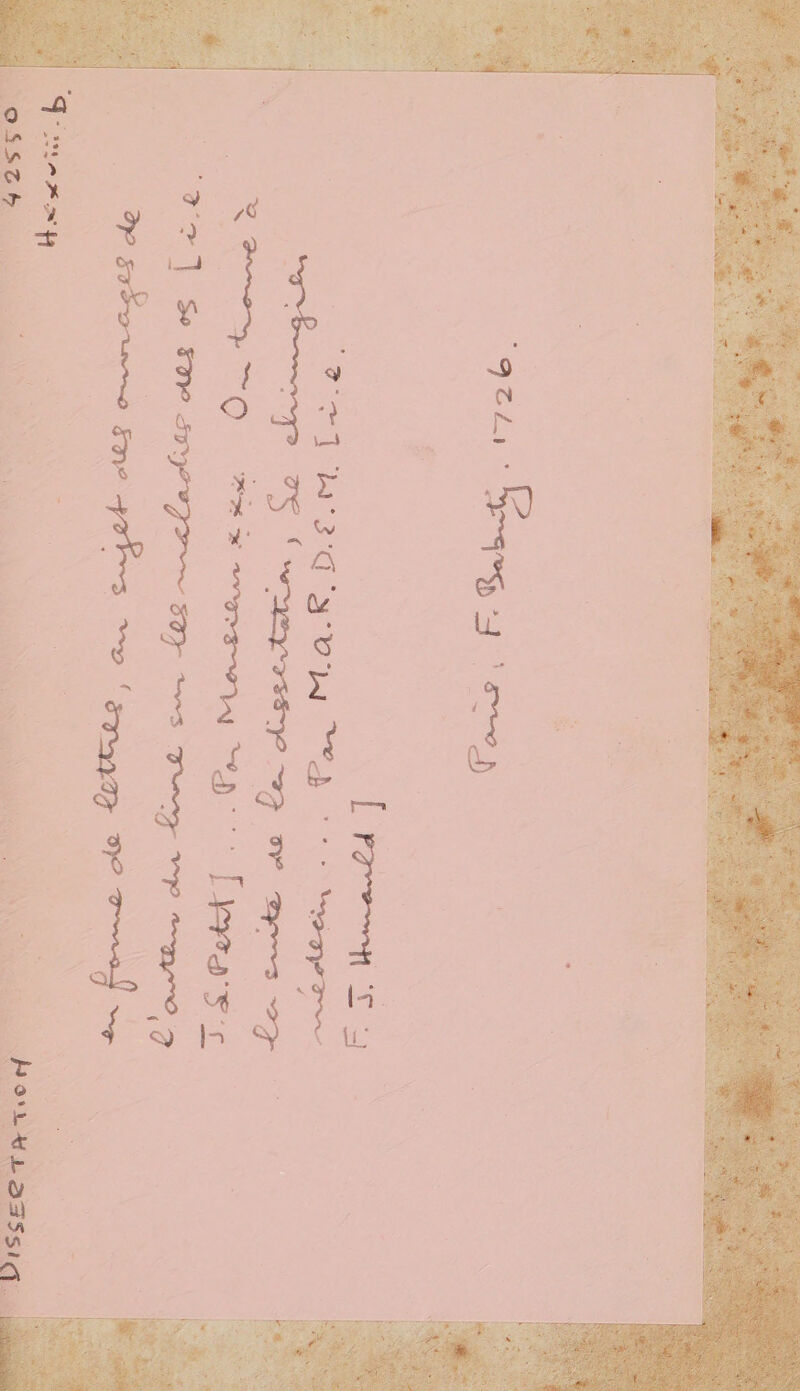 DISSERTATION 42550
Hxxviii.b.
en forme de lettres, au sujet des ouvrages de
l'auteur du livre sur les maladies des os [i.e.
J.L. Petit] ... Par Monsieur xxx. On trouve à
la suite de la dissertation, Le chirurgien
médecin ... Par M.A.R.D.E.M. [i.e.
F. J. Hunauld]
Paris, F. Babuty, 1726.